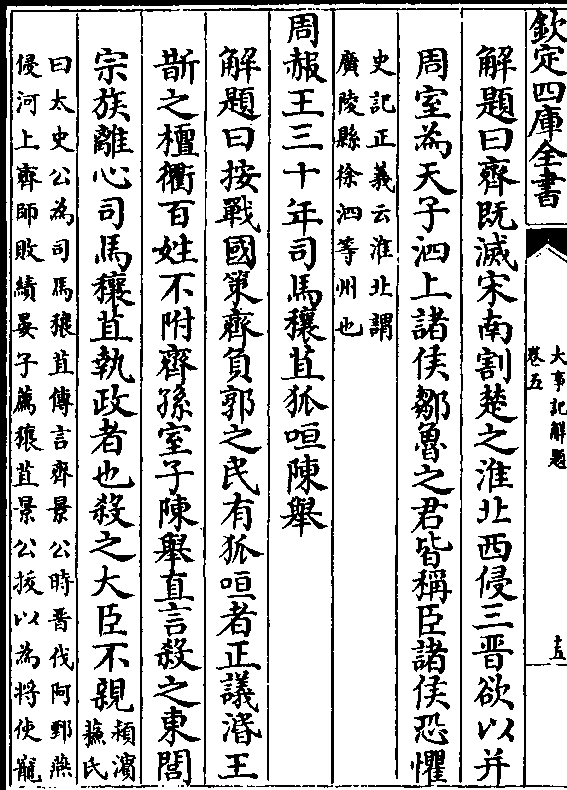 欽定四庫全書
大事記解題
卷五
十五
解題曰齊既滅宋南割楚之淮北西侵三晉欲以并
周室為天子泗上諸侯鄒魯之君皆稱臣諸侯恐懼
史記正義云淮北謂
廣陵縣徐泗等州也
周赧王三十年司馬穰苴狐咺陳舉
解題曰按戰國策齊負郭之民有狐咺者正議湣王
斮之檀衢百姓不附齊孫室子陳舉直言殺之東閭
宗族離心司馬穰苴執政者也殺之大臣不親
潁濱
蘇氏
曰太史公為司馬穰苴傳言齊景公時晉伐阿鄄燕
侵河上齊師敗績晏子薦穰苴景公拔以為將使寵